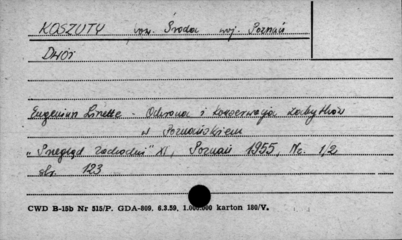 KOSZUTY pow. Środa woj. Poznań
Dwór
Eugeniusz Linette - Ochrona i konserwacja zabytków
w Poznańskiem
"Przegląd Zachodni" XI, Poznań 1955, Nr. 1/2
str. 123
CWD B-15b Nr 515/P. GDA-809. 6.3.59. 1.000.000 karton 180/V.